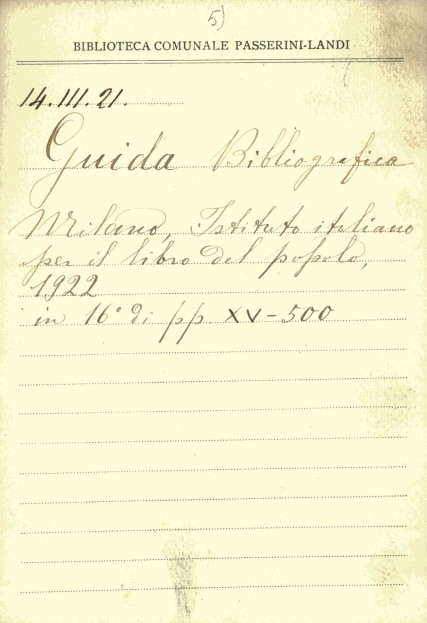 5)
BIBLIOTECA COMUNALE PASSERINI-LANDI
14.III.21.
Guida Bibliografica
Milano, Istituto italiano
per il libro del popolo,
1922
in 16° di pp XV-500